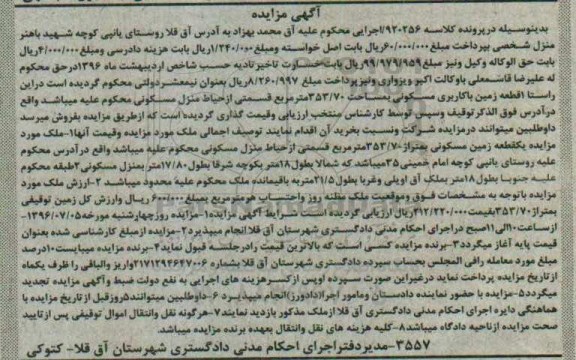 آگهی مزایده
بدینوسیله درپرونده کلاسه ۹۲۰۲۵۶/اجرایی محکوم علیه آق محمد بهزاد به آدرس آق قلا روستای یانپی کوچه شهید باهنر
منزل شخصی بپرداخت مبلغ ۶۰/۰۰۰/۰۰۰ریال بابت اصل خواسته ومبلغ۱/۲۴۰/۰۰۰ریال بابت هزینه دادرسی ومبلغ ۴/۰۰۰/۰۰۰ریال
بابت حق الوکاله وکیل ونیز مبلغ۹۹/۹۷۹/۹۵۹ریال بابت خسارت تاخیرتادیه حسب شاخص اردیبهشت ماه ۱۳۹۶درحق محکوم
له علیرضا قاسمعلی باوکالت اکبر ویزواری ونیزپرداخت مبلغ ۸/۲۶۰/۹۹۷ریال بعنوان نیمعشردولتی محکوم گردیده است دراین
راستا ۱قطعه زمین باکاربری مسکونی بمساحت ۳۵۳/۷۰مترمربع قسمتی ازحیاط منزل مسکونی محکوم علیه میباشد واقع
درآدرس فوق الذکرتوقیف وسپس توسط کارشناس منتخب ارزیابی وقیمت گذاری گردیده است که ازطریق مزایده بفروش میرسد
داوطلبین میتوانند درمزایده شرکت ونسبت بخرید آن اقدام نمایند توصیف اجمالی ملک مورد مزایده وقیمت آنها۱-ملک مورد
مزایده یکقطعه زمین مسکونی بمتراژ۳۵۳/۷۰مترمربع قسمتی ازحیاط منزل مسکونی محکوم علیه میباشد واقع درآدرس محکوم
علیه روستای یانپی کوچه امام خمینی ۳۵میباشدکه شمالا بطول۱۸متر بکوچه شرقا بطول۱۷/۸۰متر بمنزل مسکونی۲طبقه محکوم
علیه جنوبا بطول۱۸متر بملک آق اویلی وغربا بطول۲۱/۵متربه باقیمانده ملک محکوم علیه محدود میباشد ۲-ارزش ملک مورد
مزایده باتوجه به مشخصات فوق وموقعیت ملک بنظنه روز واحتساب هرمترمربع بمبلغ۶۰۰/۰۰۰ ریال وارزش کل زمین توقیفی
بمتراژ۳۵۳/۷۰بقیمت۲۱۲/۲۲۰/۰۰۰ریال ارزیابی گردیده است شرایط آگهی مزایده۱-مزایده روزچهارشنبه مورخه۱۳۹۶/۰۷/۰۵-
ازساعت۱۰الی۱۱صبح دراجرای احکام مدنی دادگستری شهرستان آق قلاانجام میپذیرد۲-مزایده ازمبلغ کارشناسی شده بعنوان
قیمت پایه آغاز میگردد۳-برنده مزایده کسی است که بالاترین قیمت رادرجلسه قبول نماید۴-برنده مزایده میبایست۱۰درصد
مبلغ مورد معامله رافی المجلس بحساب سپرده دادگستری شهرستان آق قلابشماره ۲۱۷۱۲۹۴۶۴۷۰۰۶واریز والباقی را ظرف یکماه
ازتاریخ مزایده پرداخت نماید درغیراین صورت سپرده اوپس ازکسرهزینه های اجرایی به نفع دولت ضبط وآگهی مزایده تجدید
میگردد۵-مزایده با حضور نماینده دادستان ومامور اجرا(دادورز)انجام میپذیرد ۶-داوطلبین میتوانند۵روزقبل از تاریخ مزایده با
هماهنگی دایره اجرای احکام مدنی دادگستری آق قلاازملک مذکور بازدید نمایند۷-هرگونه نقل وانتقال اموال توقیفی پس ازتایید
صحت مزایده ازناحیه دادگاه میباشد۸-کلیه هزینه های نقل وانتقال بعهده برنده مزایده میباشد.
۳۵۵۷-مدیردفتراجرای احکام مدنی دادگستری شهرستان آق قلا- کتوکی